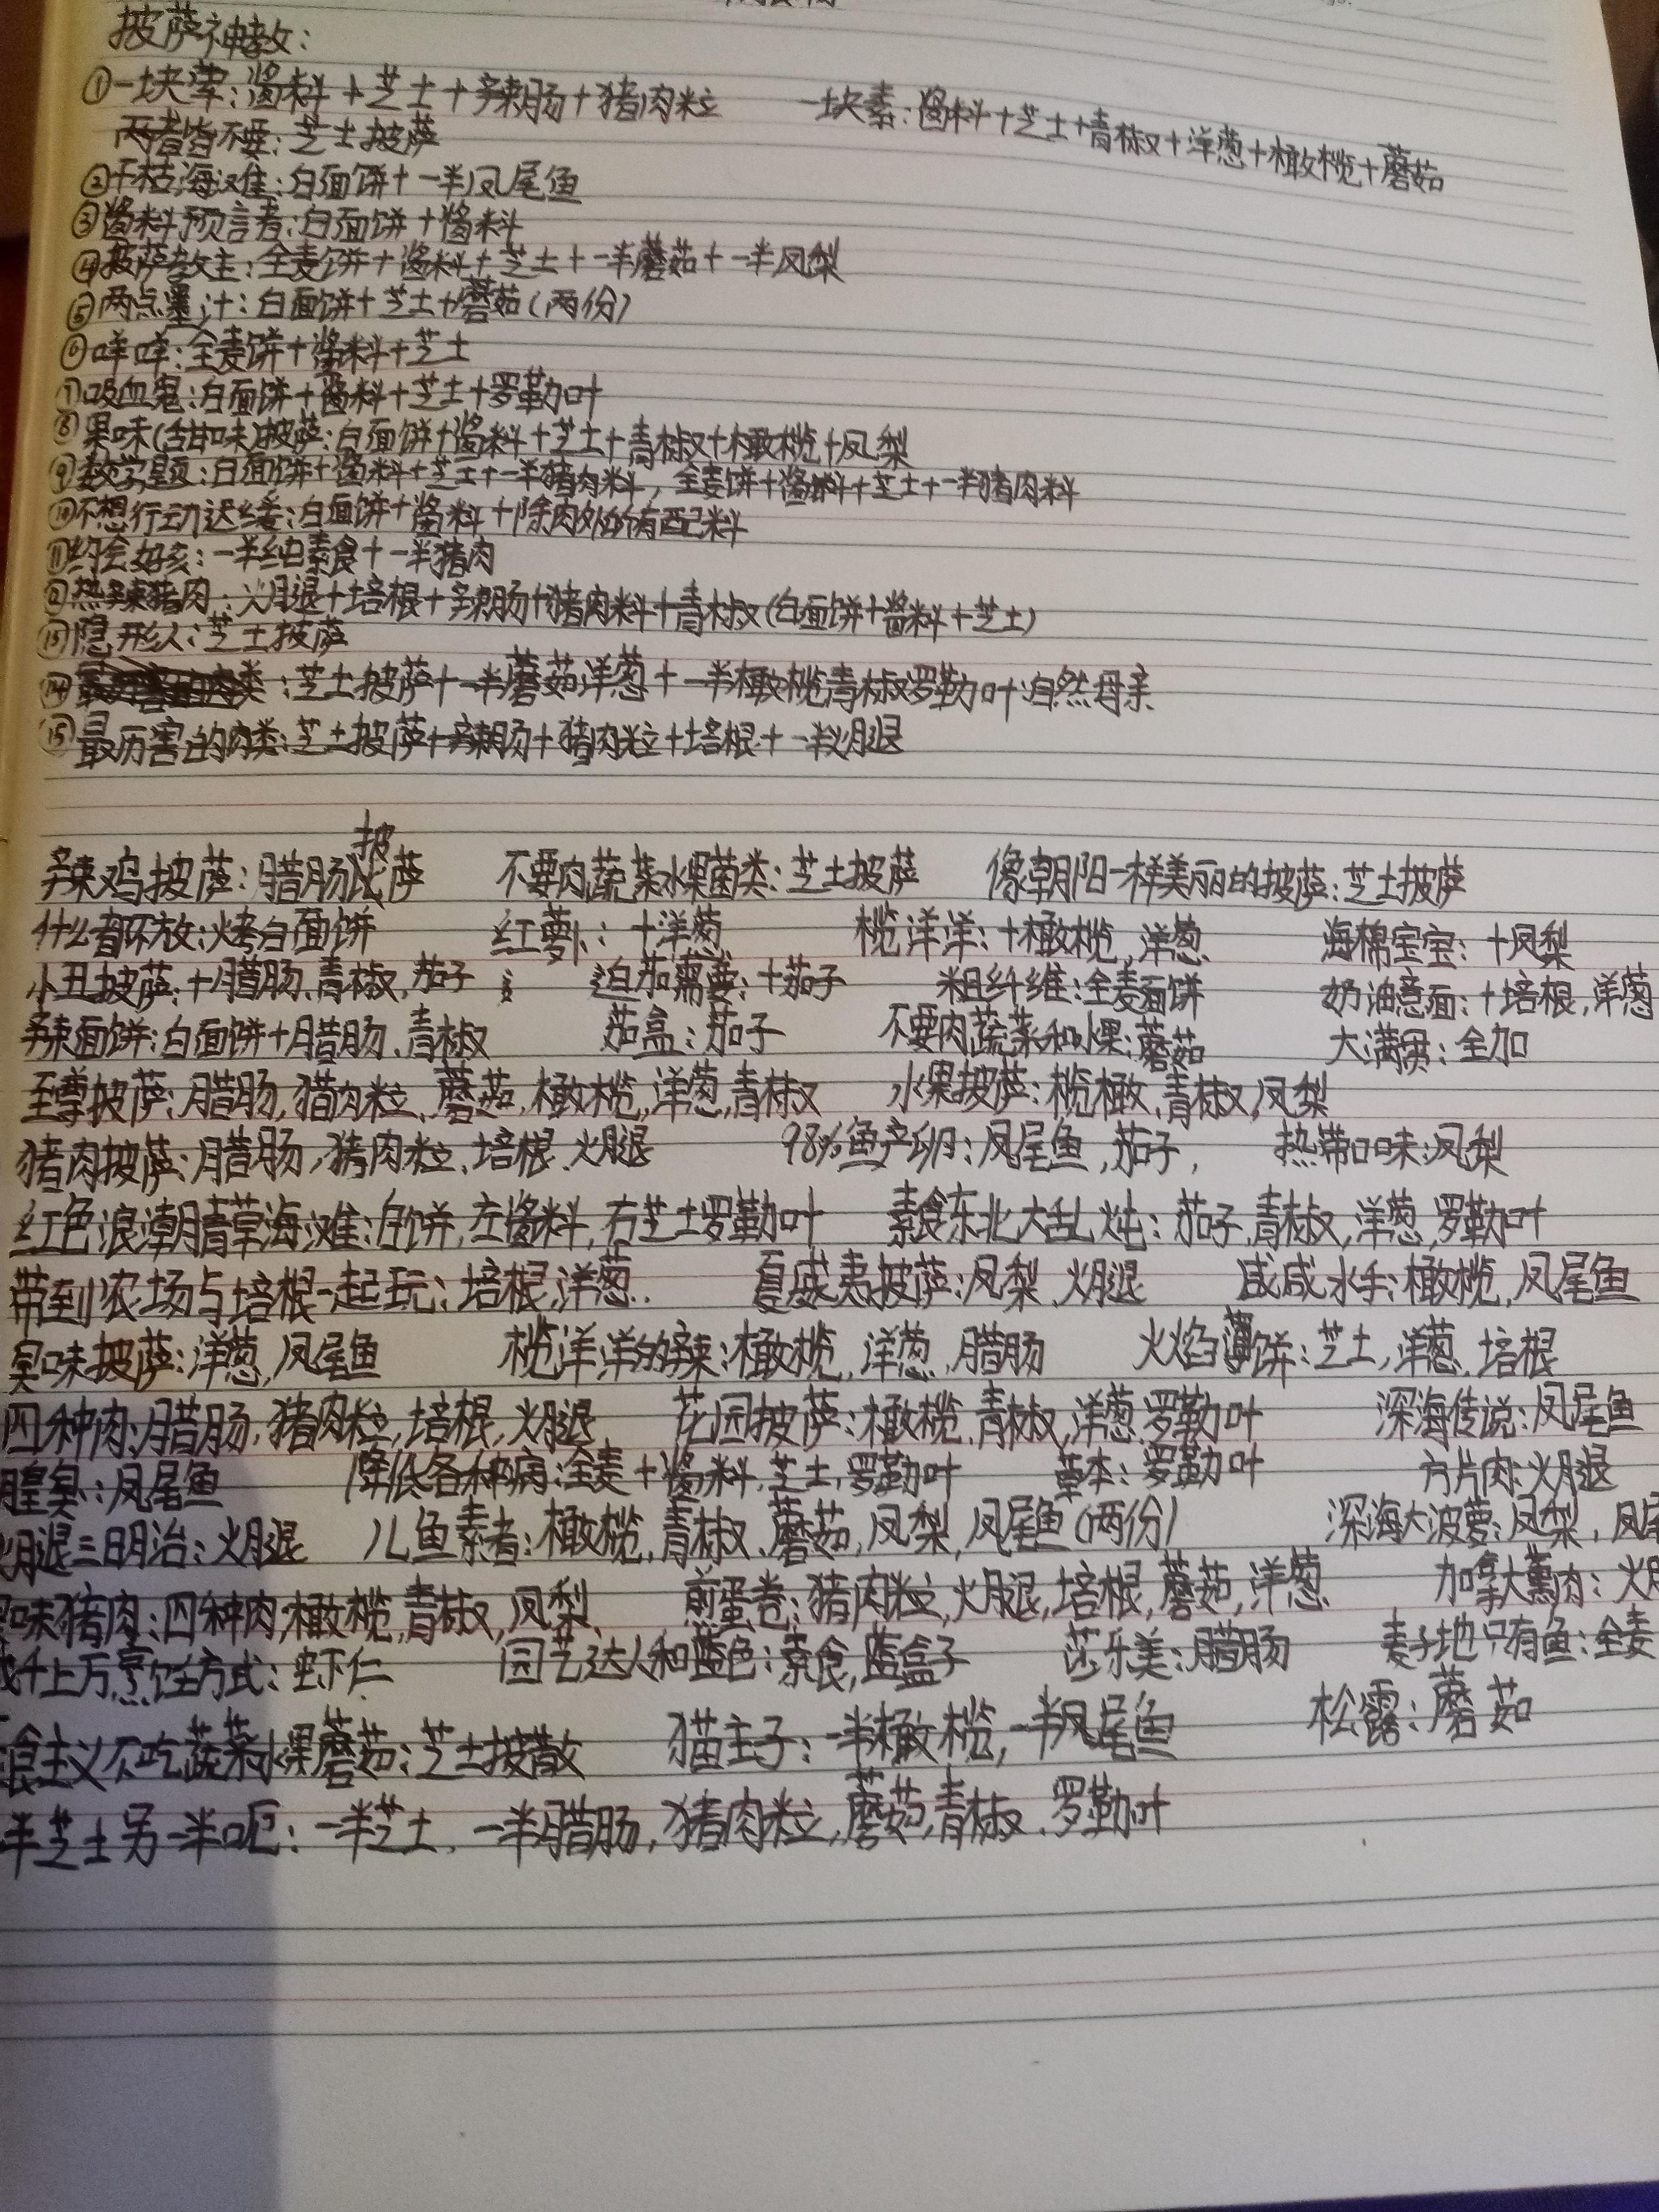 披萨神教：
①一块荤：酱料+芝士+辣肠+猪肉粒 一块素：酱料+芝士+青椒+洋葱+橄榄+蘑菇
两者皆不要：芝士披萨
②干枯海滩：白面饼+一半凤尾鱼
③酱料预言者：白面饼+酱料
④披萨教主：全麦饼+酱料+芝士+一半蘑菇+一半凤梨
⑤两点墨汁：白面饼+芝士+蘑菇（两份）
⑥咩咩：全麦饼+酱料+芝士
⑦吸血鬼：白面饼+酱料+芝士+罗勒叶
⑧果味（甜味）披萨：白面饼+酱料+芝士+青椒+橄榄+凤梨
⑨数学题：白面饼+酱料+芝士+一半猪肉料，全麦饼+酱料+芝士+一半猪肉料
⑩不想行动迟缓：白面饼+酱料+除肉外所有配料
⑪约会好孩：一半纯素食+一半猪肉
⑫热辣猪肉：火腿+培根+辣肠+猪肉料+青椒（白面饼+酱料+芝士）
⑬隐形人：芝士披萨
⑭类：芝士披萨+一半蘑菇洋葱+一半橄榄青椒罗勒叶：自然母亲
⑮最厉害的肉类：芝士披萨+辣肠+猪肉粒+培根+一半火腿
披
辣鸡披萨：腊肠比萨 不要肉蔬菜水果菌类：芝士披萨 像朝阳一样美丽的披萨：芝士披萨
什么都不放：烤白面饼 红萝卜：+洋葱 榄洋洋：+橄榄，洋葱 海棉宝宝：+凤梨
小丑披萨：+腊肠、青椒，茄子 迫茄需要：+茄子 粗纤维：全麦面饼 奶油意面：+培根，洋葱
辣面饼：白面饼+腊肠、青椒 茄盒：茄子 不要肉蔬菜和水果：蘑菇 大满贯：全加
至尊披萨：腊肠，猪肉粒、蘑菇，橄榄，洋葱，青椒 水果披萨：榄橄，青椒，凤梨
猪肉披萨：腊肠，猪肉粒、培根、火腿 98%鱼产卵：凤尾鱼，茄子， 热带口味：凤梨
红色浪潮腈草海滩：白饼，左酱料，右芝士罗勒叶 素食东北大乱炖：茄子，青椒，洋葱，罗勒叶
带到农场与培根一起玩：培根，洋葱. 夏威夷披萨：凤梨、火腿 咸咸水手：橄榄，凤尾鱼
臭味披萨：洋葱，凤尾鱼 榄洋洋的辣：橄榄，洋葱，腊肠 火焰薄饼：芝士，洋葱，培根
四种肉：腊肠，猪肉粒，培根，火腿 花园披萨：橄榄，青椒，洋葱，罗勒叶 深海传说：凤尾鱼
腥臭：凤尾鱼 降低各种病：全麦+酱料，芝士，罗勒叶 草本：罗勒叶 方片肉：火腿
火腿三明治：火腿 儿鱼素者：橄榄，青椒、蘑菇，凤梨，凤尾鱼（两份） 深海大波萝：凤梨，凤尾
味猪肉：四种肉，橄榄，青椒，凤梨、 煎蛋卷：猪肉粒，火腿，培根，蘑菇，洋葱 加拿大薰肉：火腿
千上万烹饪方式：虾仁 园艺达人和蓝色：素食，蓝盒子 莎乐美：腊肠 麦子地只有鱼：全麦
食主义不吃蔬菜水果蘑菇：芝士披散 猫主子：一半橄榄，一半凤尾鱼 松露：蘑菇
半芝士另一半呃：一半芝士，一半腊肠，猪肉粒，蘑菇，青椒、罗勒叶